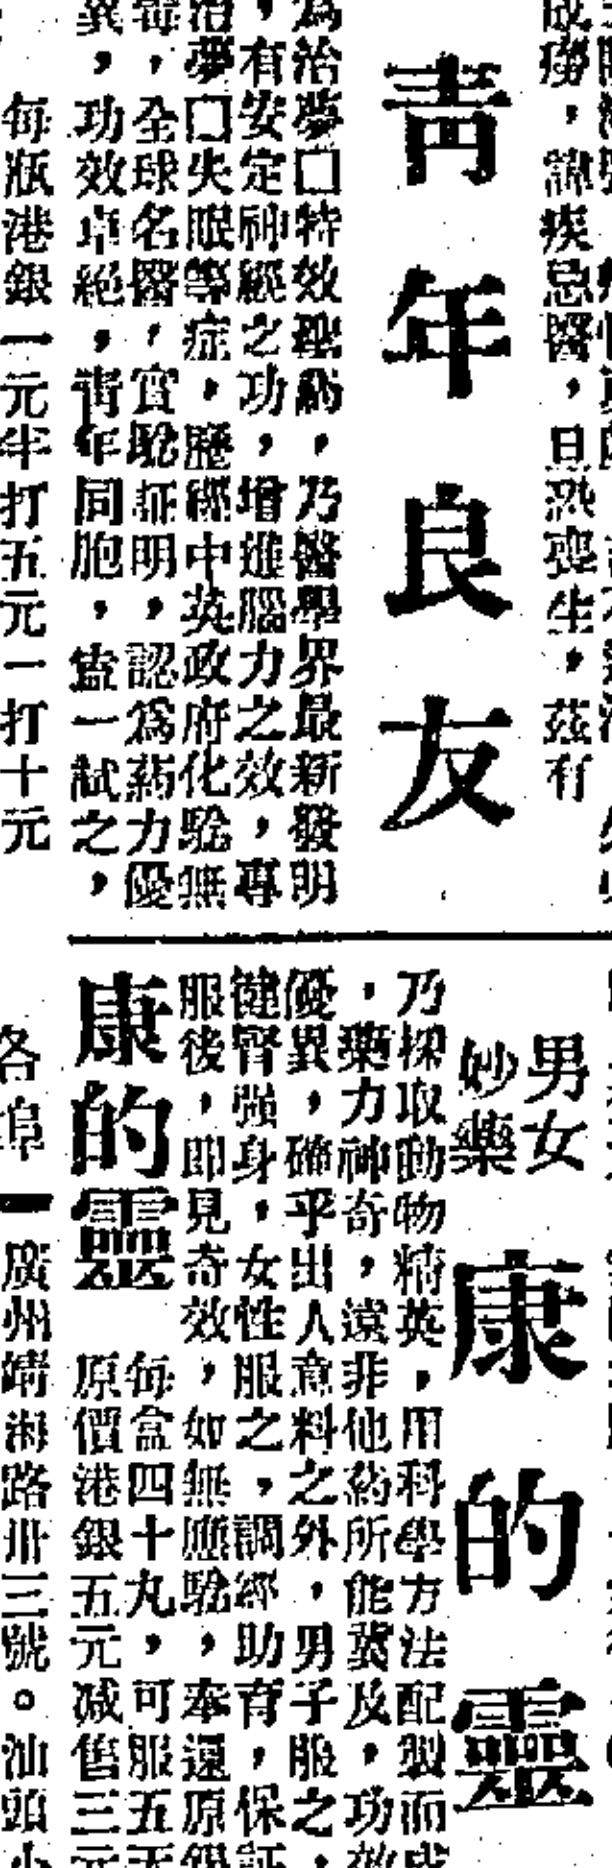 成癆，諱疾忌醫，日深喪生，茲有
青年良友
為治夢囗特效聖药，乃醫學界最新發明
，有安定神經之功，增進腦力之效，專
治夢囗失眠等症，歷經中英政府化騐無
毒，全球名醫，實騐証明，認爲葯力優
異，功效卓絕，靑年同胞，盍一試之，
每瓶港銀一元半打五元一打十元
男女
妙藥
康的靈
乃採取動物精英，用科學方法配製而成
，藥力神奇，遠非他葯所能冀及，功效
優異，確乎出人意料之外，男子服之，
健腎强身，女性服之，調經助育，保証
服後，即見奇效，如無應騐，奉還原銀
康的靈
每盒四十丸，可服五天
原價港銀五元减售三元
各埠
廣州靖海路卅三號。汕頭小